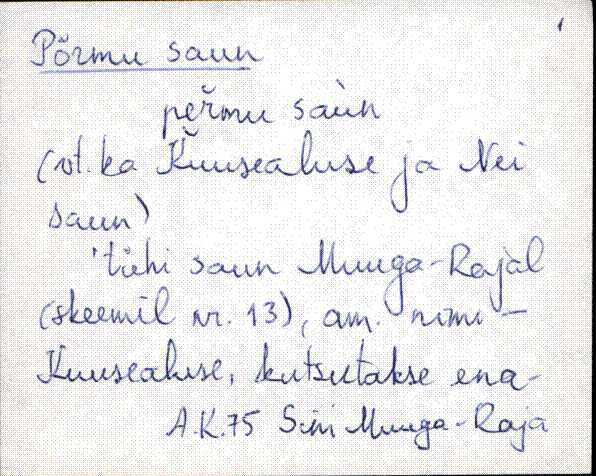 1
Põrmu saun
peřmu saùn
(vt. ka Kuusealuse ja Nei
saun)
'tühi saun Muuga-Rajal
(skeemil nr. 13), am. nimi -
Kuusealuse, kutsutakse ena-
A.K.75 Simi Muuga-Raja